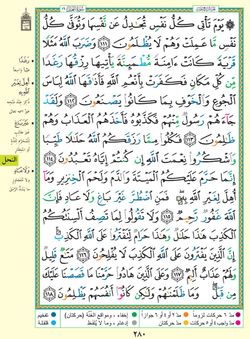 يَوْمَ تَأْتِى كُلُّ نَفْسٍ تُجَٰدِلُ عَن نَّفْسِهَا وَتُوَفَّىٰ كُلُّ
نَفْسٍ مَّا عَمِلَتْ وَهُمْ لَا يُظْلَمُونَ ١١١ وَضَرَبَ ٱللَّهُ مَثَلًا
قَرْيَةً كَانَتْ ءَامِنَةً مُّطْمَئِنَّةً يَأْتِيهَا رِزْقُهَا رَغَدًا
مِّن كُلِّ مَكَانٍ فَكَفَرَتْ بِأَنْعُمِ ٱللَّهِ فَأَذَٰقَهَا ٱللَّهُ لِبَاسَ
ٱلْجُوعِ وَٱلْخَوْفِ بِمَا كَانُوا۟ يَصْنَعُونَ ١١٢ وَلَقَدْ
جَآءَهُمْ رَسُولٌ مِّنْهُمْ فَكَذَّبُوهُ فَأَخَذَهُمُ ٱلْعَذَابُ وَهُمْ
ظَٰلِمُونَ ١١٣ فَكُلُوا۟ مِمَّا رَزَقَكُمُ ٱللَّهُ حَلَٰلًا طَيِّبًا
وَٱشْكُرُوا۟ نِعْمَتَ ٱللَّهِ إِن كُنتُمْ إِيَّاهُ تَعْبُدُونَ ١١٤
إِنَّمَا حَرَّمَ عَلَيْكُمُ ٱلْمَيْتَةَ وَٱلدَّمَ وَلَحْمَ ٱلْخِنزِيرِ وَمَآ
أُهِلَّ لِغَيْرِ ٱللَّهِ بِهِۦ فَمَنِ ٱضْطُرَّ غَيْرَ بَاغٍ وَلَا عَادٍ فَإِنَّ
ٱللَّهَ غَفُورٌ رَّحِيمٌ ١١٥ وَلَا تَقُولُوا۟ لِمَا تَصِفُ أَلْسِنَتُكُمُ
ٱلْكَذِبَ هَٰذَا حَلَٰلٌ وَهَٰذَا حَرَامٌ لِّتَفْتَرُوا۟ عَلَى ٱللَّهِ ٱلْكَذِبَ
إِنَّ ٱلَّذِينَ يَفْتَرُونَ عَلَى ٱللَّهِ ٱلْكَذِبَ لَا يُفْلِحُونَ ١١٦ مَتَٰعٌ قَلِيلٌ
وَلَهُمْ عَذَابٌ أَلِيمٌ ١١٧ وَعَلَى ٱلَّذِينَ هَادُوا۟ حَرَّمْنَا مَا قَصَصْنَا عَلَيْكَ
مِن قَبْلُ وَمَا ظَلَمْنَٰهُمْ وَلَٰكِن كَانُوٓا۟ أَنفُسَهُمْ يَظْلِمُونَ ١١٨
النحل
تفخيم
قلقلة
٢٨٠